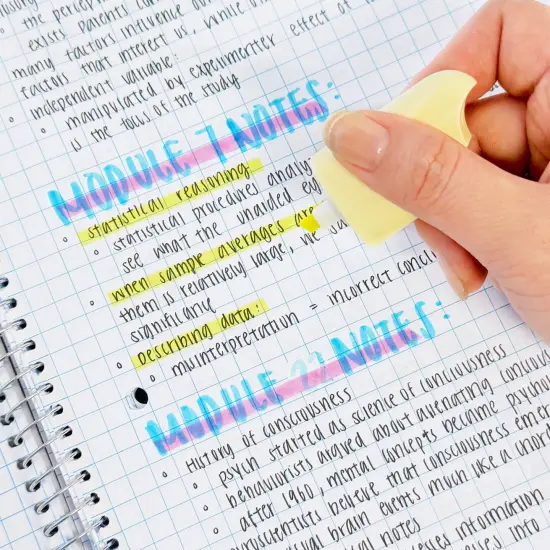 the perce
exists parents c
many factors influence ou
factors that interest us, while
independent variable:
manipulated by experimenter effect of
is the focus of the study
MODULE 7 NOTES:
statistical reasoning
statistical procedures analy
see what the unaided ey
when sample averages are
them is relatively large, we sa
significance
Describing data:
misinterpretation = incorrect conclu
MODULE 22 NOTES:
History of consciousness
psych started as science of conciiousness
behaviorists argued about alienating conciou
after 1960, mental concepts became psycho
neuroscientists believe that consciousness eme
brain events much like a chord
notes
information